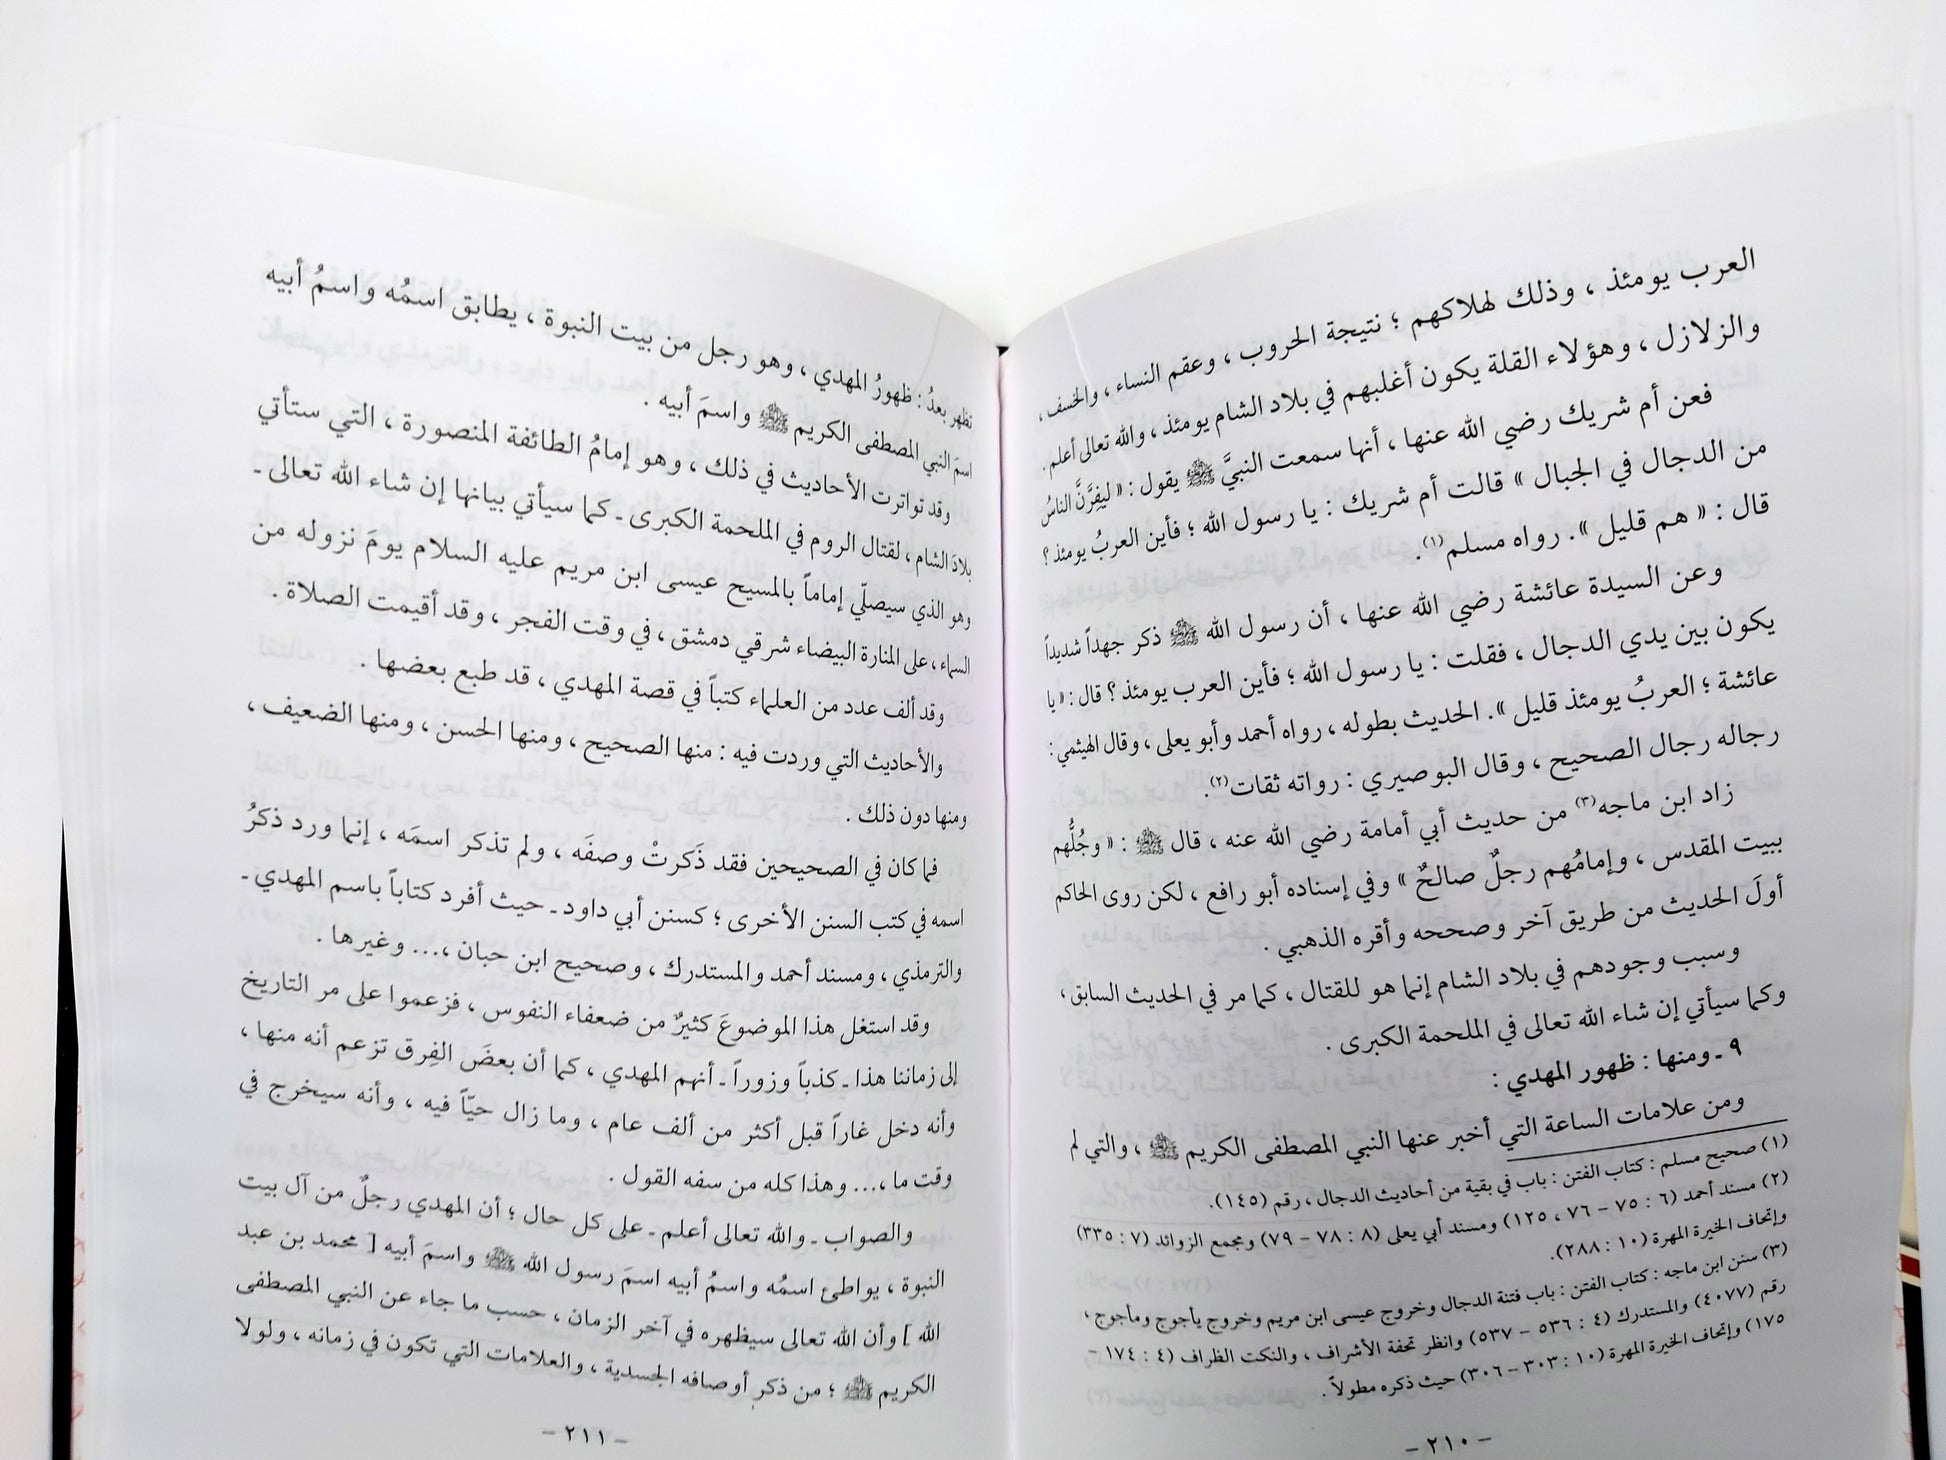 العرب يومئذ ، وذلك لهلاكهم ؛ نتيجة الحروب ، وعقم النساء ، والخسف ،
والزلازل ، وهؤلاء القلة يكون أغلبهم في بلاد الشام يومئذ ، والله تعالى أعلم .
فعن أم شريك رضي الله عنها ، أنها سمعت النبيَّ ﷺ يقول : « ليفِرَّنَّ الناسُ
من الدجال في الجبال » قالت أم شريك : يا رسول الله ؛ فأين العربُ يومئذ ؟
قال : « هم قليل ». رواه مسلم(١).
وعن السيدة عائشة رضي الله عنها ، أن رسول الله ﷺ ذكر جهداً شديداً
يكون بين يدي الدجال ، فقلت : يا رسول الله ؛ فأين العرب يومئذ ؟ قال : « يا
عائشة ؛ العربُ يومئذ قليل ». الحديث بطوله ، رواه أحمد وأبو يعلى ، وقال الهيثمي :
رجاله رجال الصحيح ، وقال البوصيري : رواته ثقات(٢).
زاد ابن ماجه(٣) من حديث أبي أمامة رضي الله عنه ، قال ﷺ : « وجُلُّهم
ببيت المقدس ، وإمامُهم رجلٌ صالحٌ » وفي إسناده أبو رافع ، لكن روى الحاكم
أولَ الحديث من طريق آخر وصححه وأقره الذهبي .
وسبب وجودهم في بلاد الشام إنما هو للقتال ، كما مر في الحديث السابق ،
وكما سيأتي إن شاء الله تعالى في الملحمة الكبرى .
٩ ـ ومنها : ظهور المهدي :
ومن علامات الساعة التي أخبر عنها النبي المصطفى الكريم ﷺ ، والتي لم
(١) صحيح مسلم : كتاب الفتن : باب في بقية من أحاديث الدجال ، رقم (١٤٥).
(٢) مسند أحمد (٦ : ٧٥ – ٧٦ ، ١٢٥) ومسند أبي يعلى (٨ : ٧٨ – ٧٩) ومجمع الزوائد (٧ : ٣٣٥)
وإتحاف الخيرة المهرة (١٠ : ٢٨٨).
(٣) سنن ابن ماجه : كتاب الفتن : باب فتنة الدجال وخروج عيسى ابن مريم وخروج يأجوج ومأجوج ،
رقم (٤٠٧٧) والمستدرك (٤ : ٥٣٦ – ٥٣٧) وانظر تحفة الأشراف ، والنكت الظراف (٤ : ١٧٤ –
١٧٥) وإتحاف الخيرة المهرة (١٠ : ٣٠٣ – ٣٠٦) حيث ذكره مطولاً .
– ٢١٠ –
تظهر بعدُ : ظهورُ المهدي ، وهو رجل من بيت النبوة ، يطابق اسمُه واسمُ أبيه
اسمَ النبي المصطفى الكريم ﷺ واسمَ أبيه .
وقد تواترت الأحاديث في ذلك ، وهو إمامُ الطائفة المنصورة ، التي ستأتي
بلادَ الشام ، لقتال الروم في الملحمة الكبرى ـ كما سيأتي بيانها إن شاء الله تعالى ـ
وهو الذي سيصلّي إماماً بالمسيح عيسى ابن مريم عليه السلام يومَ نزوله من
السماء ، على المنارة البيضاء شرقي دمشق ، في وقت الفجر ، وقد أقيمت الصلاة .
وقد ألف عدد من العلماء كتباً في قصة المهدي ، قد طبع بعضها .
والأحاديث التي وردت فيه : منها الصحيح ، ومنها الحسن ، ومنها الضعيف ،
ومنها دون ذلك .
فما كان في الصحيحين فقد ذَكرتْ وصفَه ، ولم تذكر اسمَه ، إنما ورد ذكرُ
اسمه في كتب السنن الأخرى ؛ كسنن أبي داود ـ حيث أفرد كتاباً باسم المهدي ـ
والترمذي ، ومسند أحمد والمستدرك ، وصحيح ابن حبان ،... وغيرها .
وقد استغل هذا الموضوعَ كثيرٌ من ضعفاء النفوس ، فزعموا على مر التاريخ
إلى زماننا هذا ـ كذباً وزوراً ـ أنهم المهدي ، كما أن بعضَ الفِرق تزعم أنه منها ،
وأنه دخل غاراً قبل أكثر من ألف عام ، وما زال حيّاً فيه ، وأنه سيخرج في
وقت ما ،... وهذا كله من سفه القول .
والصواب ـ والله تعالى أعلم ـ على كل حال ؛ أن المهدي رجلٌ من آل بيت
النبوة ، يواطئ اسمُه واسمُ أبيه اسمَ رسول الله ﷺ واسمَ أبيه [ محمد بن عبد
الله ] وأن الله تعالى سيظهره في آخر الزمان ، حسب ما جاء عن النبي المصطفى
الكريم ﷺ ؛ من ذكر أوصافه الجسدية ، والعلامات التي تكون في زمانه ، ولولا
– ٢١١ –